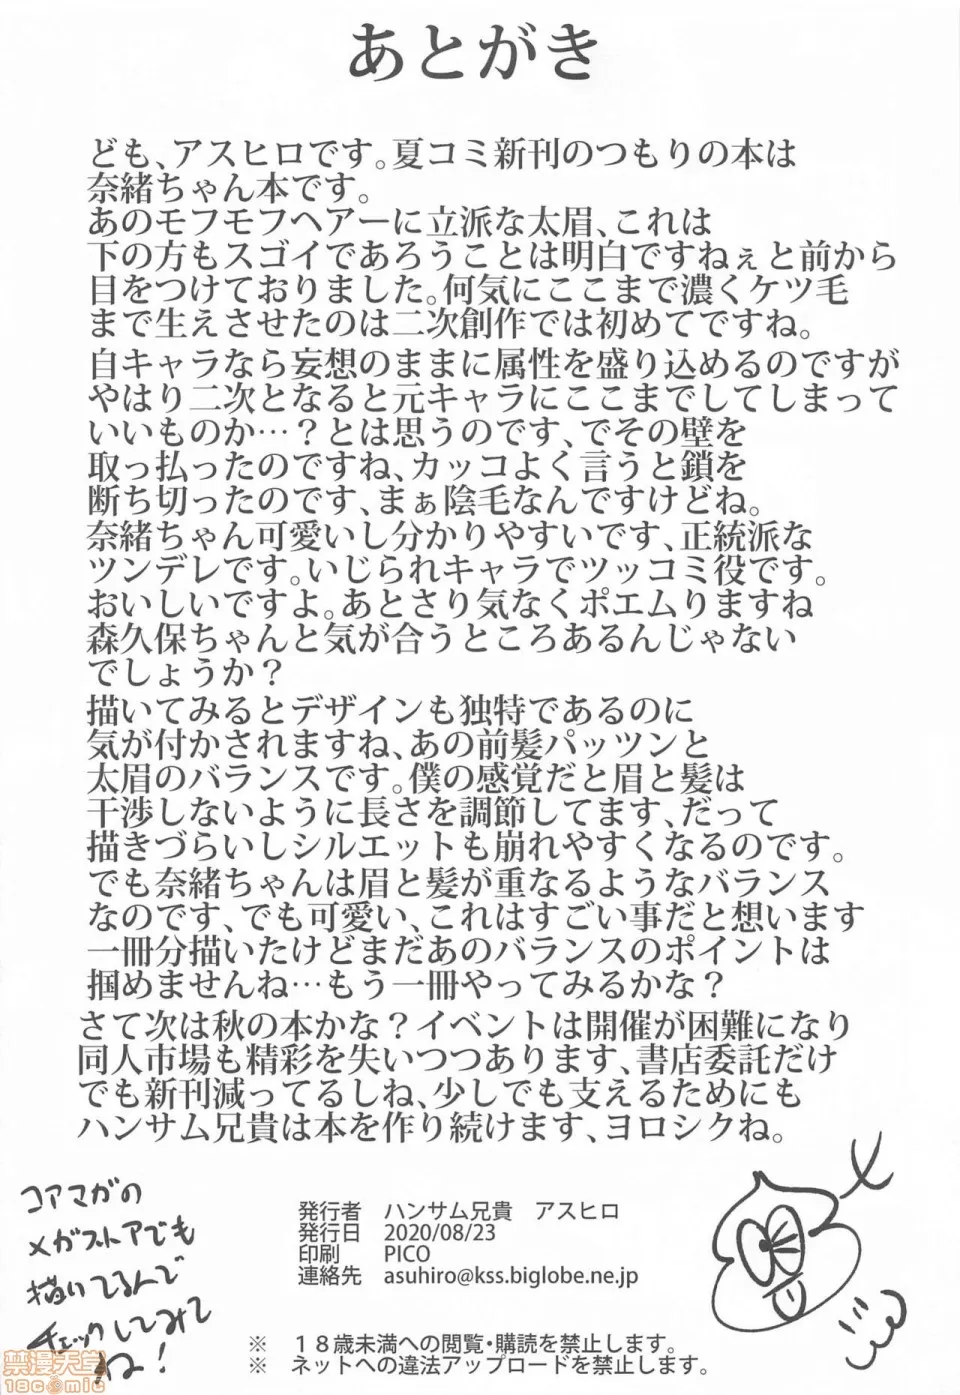 あとがき
ども、アスヒロです。夏コミ新刊のつもりの本は
奈緒ちゃん本です。
あのモフモフヘアーに立派な太眉、これは
下の方もスゴイであろうことは明白ですねぇと前から
目をつけておりました。何気にここまで濃くケツ毛
まで生えさせたのは二次創作では初めてですね。
自キャラなら妄想のままに属性を盛り込めるのですが
やはり二次となると元キャラにここまでしてしまって
いいものか…？とは思うのです、でその壁を
取っ払ったのですね、カッコよく言うと鎖を
断ち切ったのです、まぁ陰毛なんですけどね。
奈緒ちゃん可愛いし分かりやすいです、正統派な
ツンデレです。いじられキャラでツッコミ役です。
おいしいですよ。あとさり気なくポエムりますね
森久保ちゃんと気が合うところあるんじゃない
でしょうか？
描いてみるとデザインも独特であるのに
気が付かされますね、あの前髪パッツンと
太眉のバランスです。僕の感覚だと眉と髪は
干渉しないように長さを調節してます、だって
描きづらいしシルエットも崩れやすくなるのです。
でも奈緒ちゃんは眉と髪が重なるようなバランス
なのです、でも可愛い、これはすごい事だと想います
一冊分描いたけどまだあのバランスのポイントは
掴めませんね…もう一冊やってみるかな？
さて次は秋の本かな？イベントは開催が困難になり
同人市場も精彩を失いつつあります、書店委託だけ
でも新刊減ってるしね、少しでも支えるためにも
ハンサム兄貴は本を作り続けます、ヨロシクね。
コアマガの
メガストアでも
描いてるんで
チェックしてみて
ね！
発行者　ハンサム兄貴　アスヒロ
発行日　2020/08/23
印刷　PICO
連絡先　asuhiro@kss.biglobe.ne.jp
※　１８歳未満への閲覧・購読を禁止します。
※　ネットへの違法アップロードを禁止します。
禁漫天堂
18comic